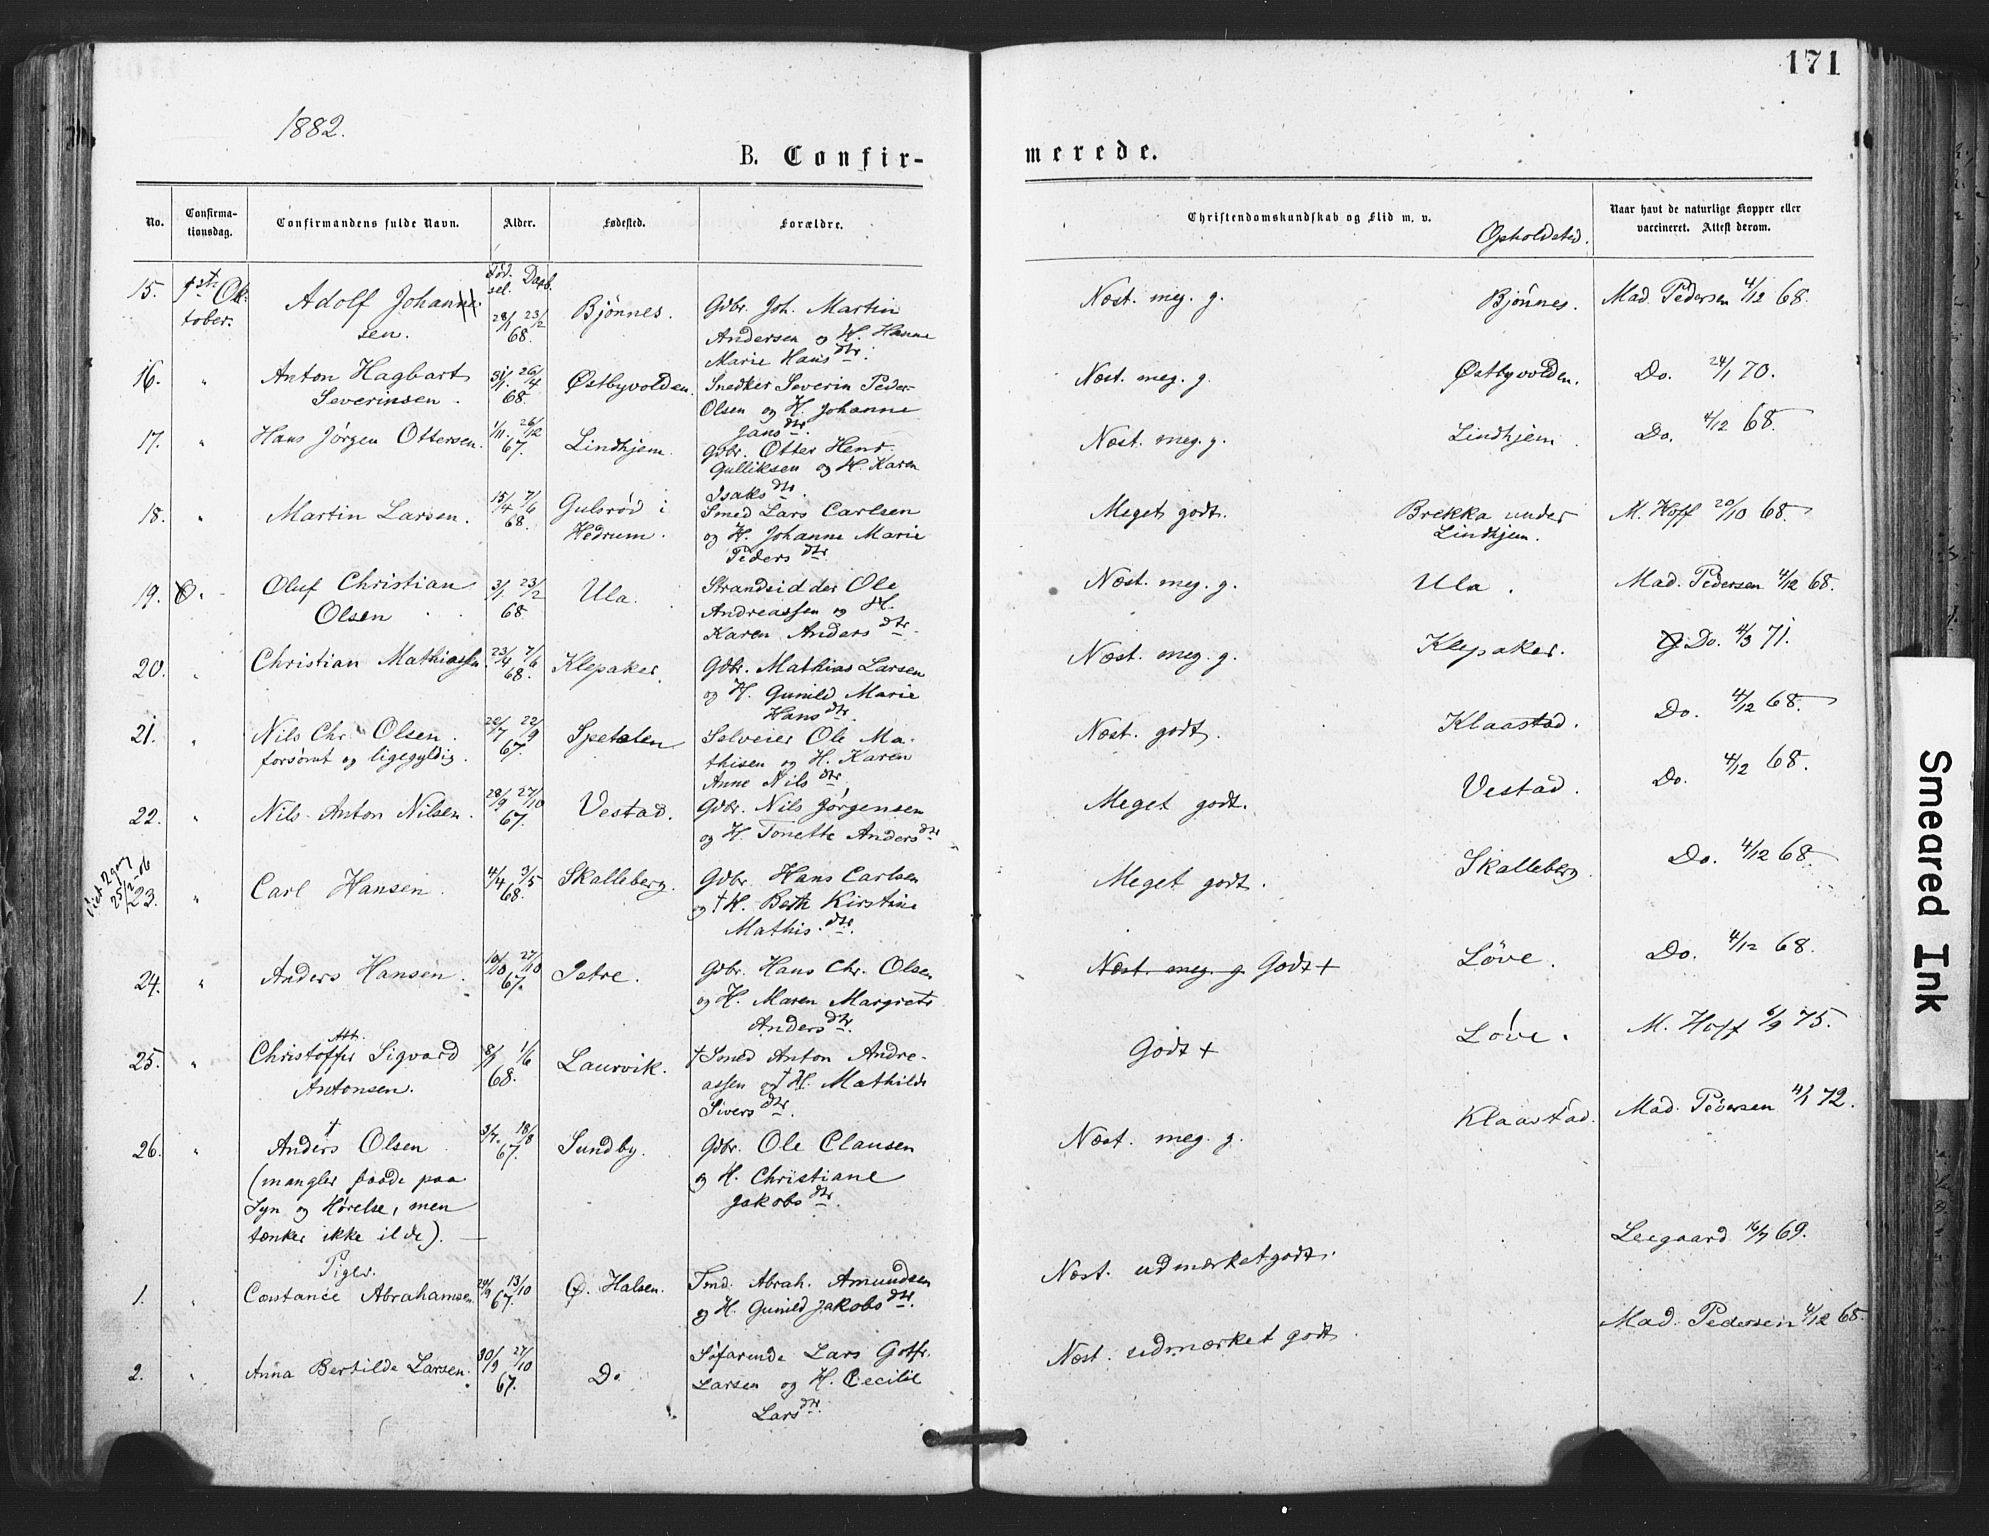 171
1882.
B. Confir-
merede.
No.
Confirma-
tionsdag.
Confirmandens fulde Navn.
Alder.
Fødested.
Forældre.
Christendomskundskab og Flid m. v.
Opholdsted.
Naar havt de naturlige Kopper eller
vaccineret. Attest derom.
Fød-
sel. Daab.
15. 1ste Ok-
tober.
Adolf Johann
sen.
28/1 23/2
68.
Bjönnes.
Gdbr. Joh. Martin
Andersen og H. Hanne
Marie Hans dtr.
Næst. meg. g.
Bjönnes.
Mad. Pedersen 4/12 68.
16. "
Anton Hagbart
Severinsen.
31/1 26/4
68.
Østbyvolden.
Snedker Severin Peder-
Olsen og H. Johanne
Jans dtr.
Næst. meg. g.
Østbyvolden.
Do. 24/1 70.
17. "
Hans Jørgen Ottersen.
1/11 26/12
67.
Lindhjem.
Gdbr. Otter Henr.
Gulliksen og H. Karen
Isaks dtr.
Næst. meg. g.
Lindhjem.
Do. 4/12 68.
18. "
Martin Larsen.
15/4 7/6
68.
Gulsrød i
Hedrum.
Smed Lars Carlsen
og H. Johanne Marie
Peders dtr.
Meget godt.
Brekka under
Lindhjem.
M. Hoff 20/10 68.
19.
Oluf Christian
Olsen
3/1 23/2
68.
Ula.
Strandsidder Ole
Andreassen og H.
Karen Anders dtr.
Næst. meg. g.
Ula.
Mad. Pedersen 4/12 68.
20. "
Christian Mathiassen.
23/4 7/6
68.
Klepaker.
Gdbr. Mathias Larsen
og H. Gunild Marie
Hans dtr.
Næst. meg. g.
Klepaker.
Do. 4/3 71.
21. "
Nils Chr. Olsen.
forsømt og ligegyldig.
22/7 22/9
67.
Spetalen
Selveier Ole Ma-
thisen og H. Karen
Anne Nils dtr.
Næst. godt.
Klaastad.
Do. 4/12 68.
22. "
Nils Anton Nilsen.
28/9 27/10
67.
Vestad.
Gdbr. Nils Jørgensen
og H. Tonette Anders dtr.
Meget godt.
Vestad.
Do. 4/12 68.
viet 2 gang
25/12-06
23. "
Carl Hansen.
4/4 3/5
68.
Skalleberg.
Gdbr. Hans Carlsen
og † H. Beth Kirstine
Mathis. dtr.
Meget godt.
Skalleberg.
Do. 4/12 68.
24. "
Anders Hansen.
10/10 27/10
67.
Istre.
Gdbr. Hans Chr. Olsen
og H. Maren Margrete
Anders dtr.
Næst. meg. g. Godt +
Löve.
Do. 4/12 68.
25. "
Christoffer Sigvard
Antonsen.
8/1 1/6
68.
Laurvik.
† Smed Anton Andre-
assen og † H. Mathilde
Sivers dtr.
Godt +
Löve.
M. Hoff 6/9 75.
26. "
†
Anders Olsen
(mangler baade paa
Syn og Hørelse, men
tænker ikke ilde).
3/7 18/8
67.
Sundby.
Gdbr. Ole Clausen
og H. Christiane
Jakobs dtr.
Næst. meg. g.
Klaastad.
Mad. Pedersen 4/1 72.
Piger.
1. "
Constance Abrahamsen
29/9 13/10
67.
Ø. Halsen.
Tmd. Abrah. Amundsen
og H. Gunild Jakobs dtr.
Næst. udmærket godt.
Leegaard 16/7 69.
2. "
Anna Bertilde Larsen.
30/9 27/10
67.
Do
Søfarende Lars Gotfr.
Larsen og H. Cecilie
Lars dtr.
Næst. udmærket godt
Mad. Pedersen 4/12 68.
Smeared Ink